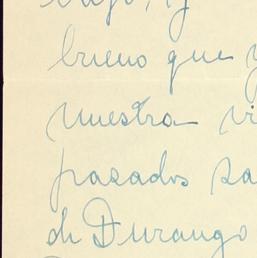 bueno que
nuestra vi
pasados sa
de Durango